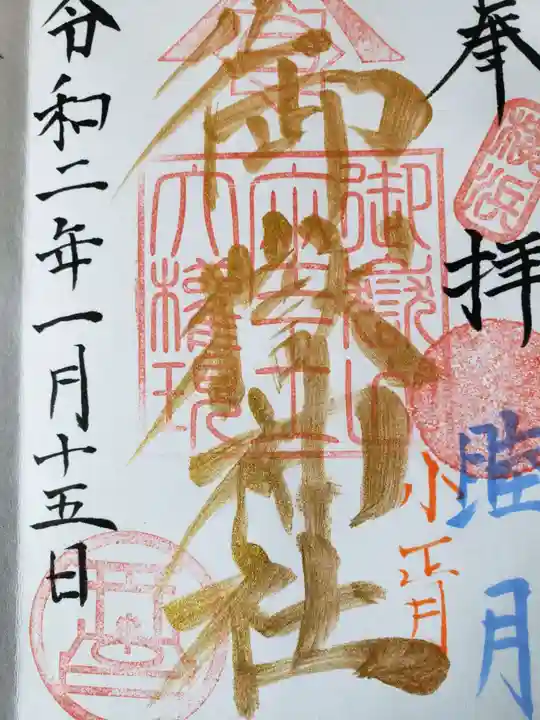 奉拝
横浜
臨月
小正月
御嶽神社
御嶽山
大権現
令和二年一月十五日